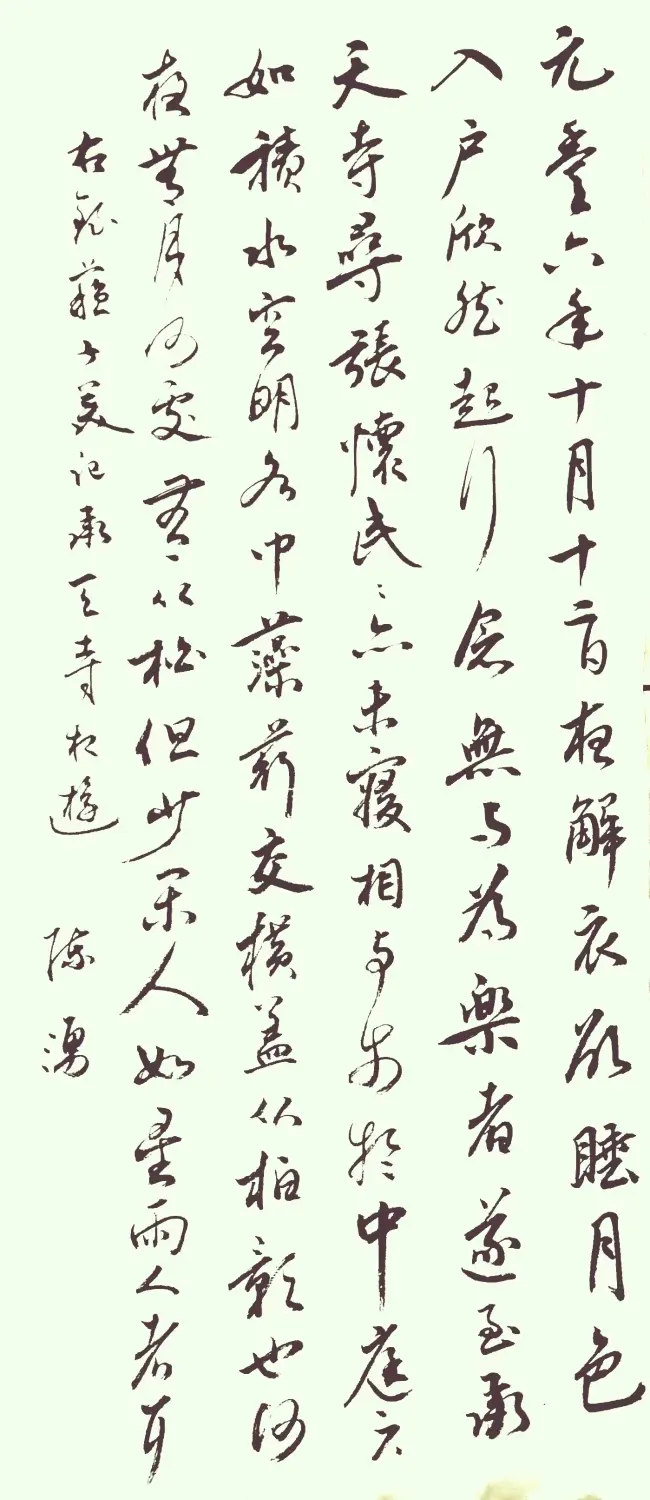 元豐六年十月十二日夜解衣欲睡月色
入戶欣然起行念無与為樂者遂至承
天寺尋張懷民〻亦未寢相与步於中庭下
如積水空明水中藻荇交橫蓋竹柏影也何
夜無月何處無竹柏但少閑人如吾兩人者耳
右錄蘇美記承天寺夜遊 陳湧